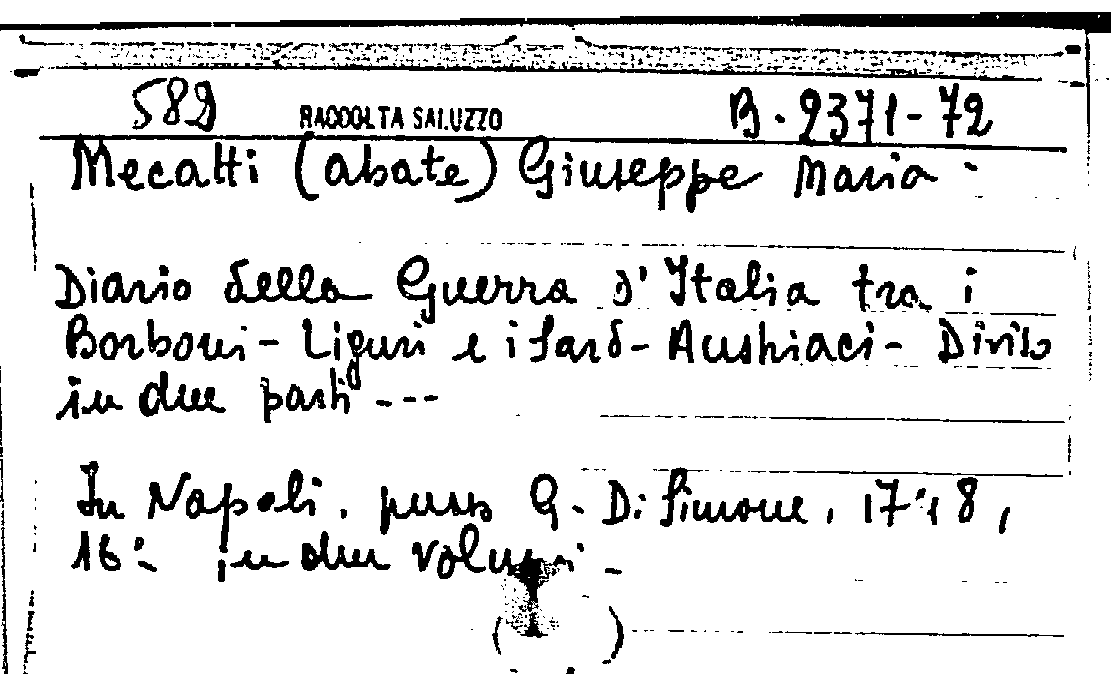 582 RACCOLTA SALUZZO B. 2371-72
Mecatti (abate) Giuseppe Maria -
Diario della Guerra d'Italia tra i
Borboni - Liguri e i Sard - Austriaci - Diviso
in due parti ---
In Napoli, presso G. Di Simone,
16° in due volumi -